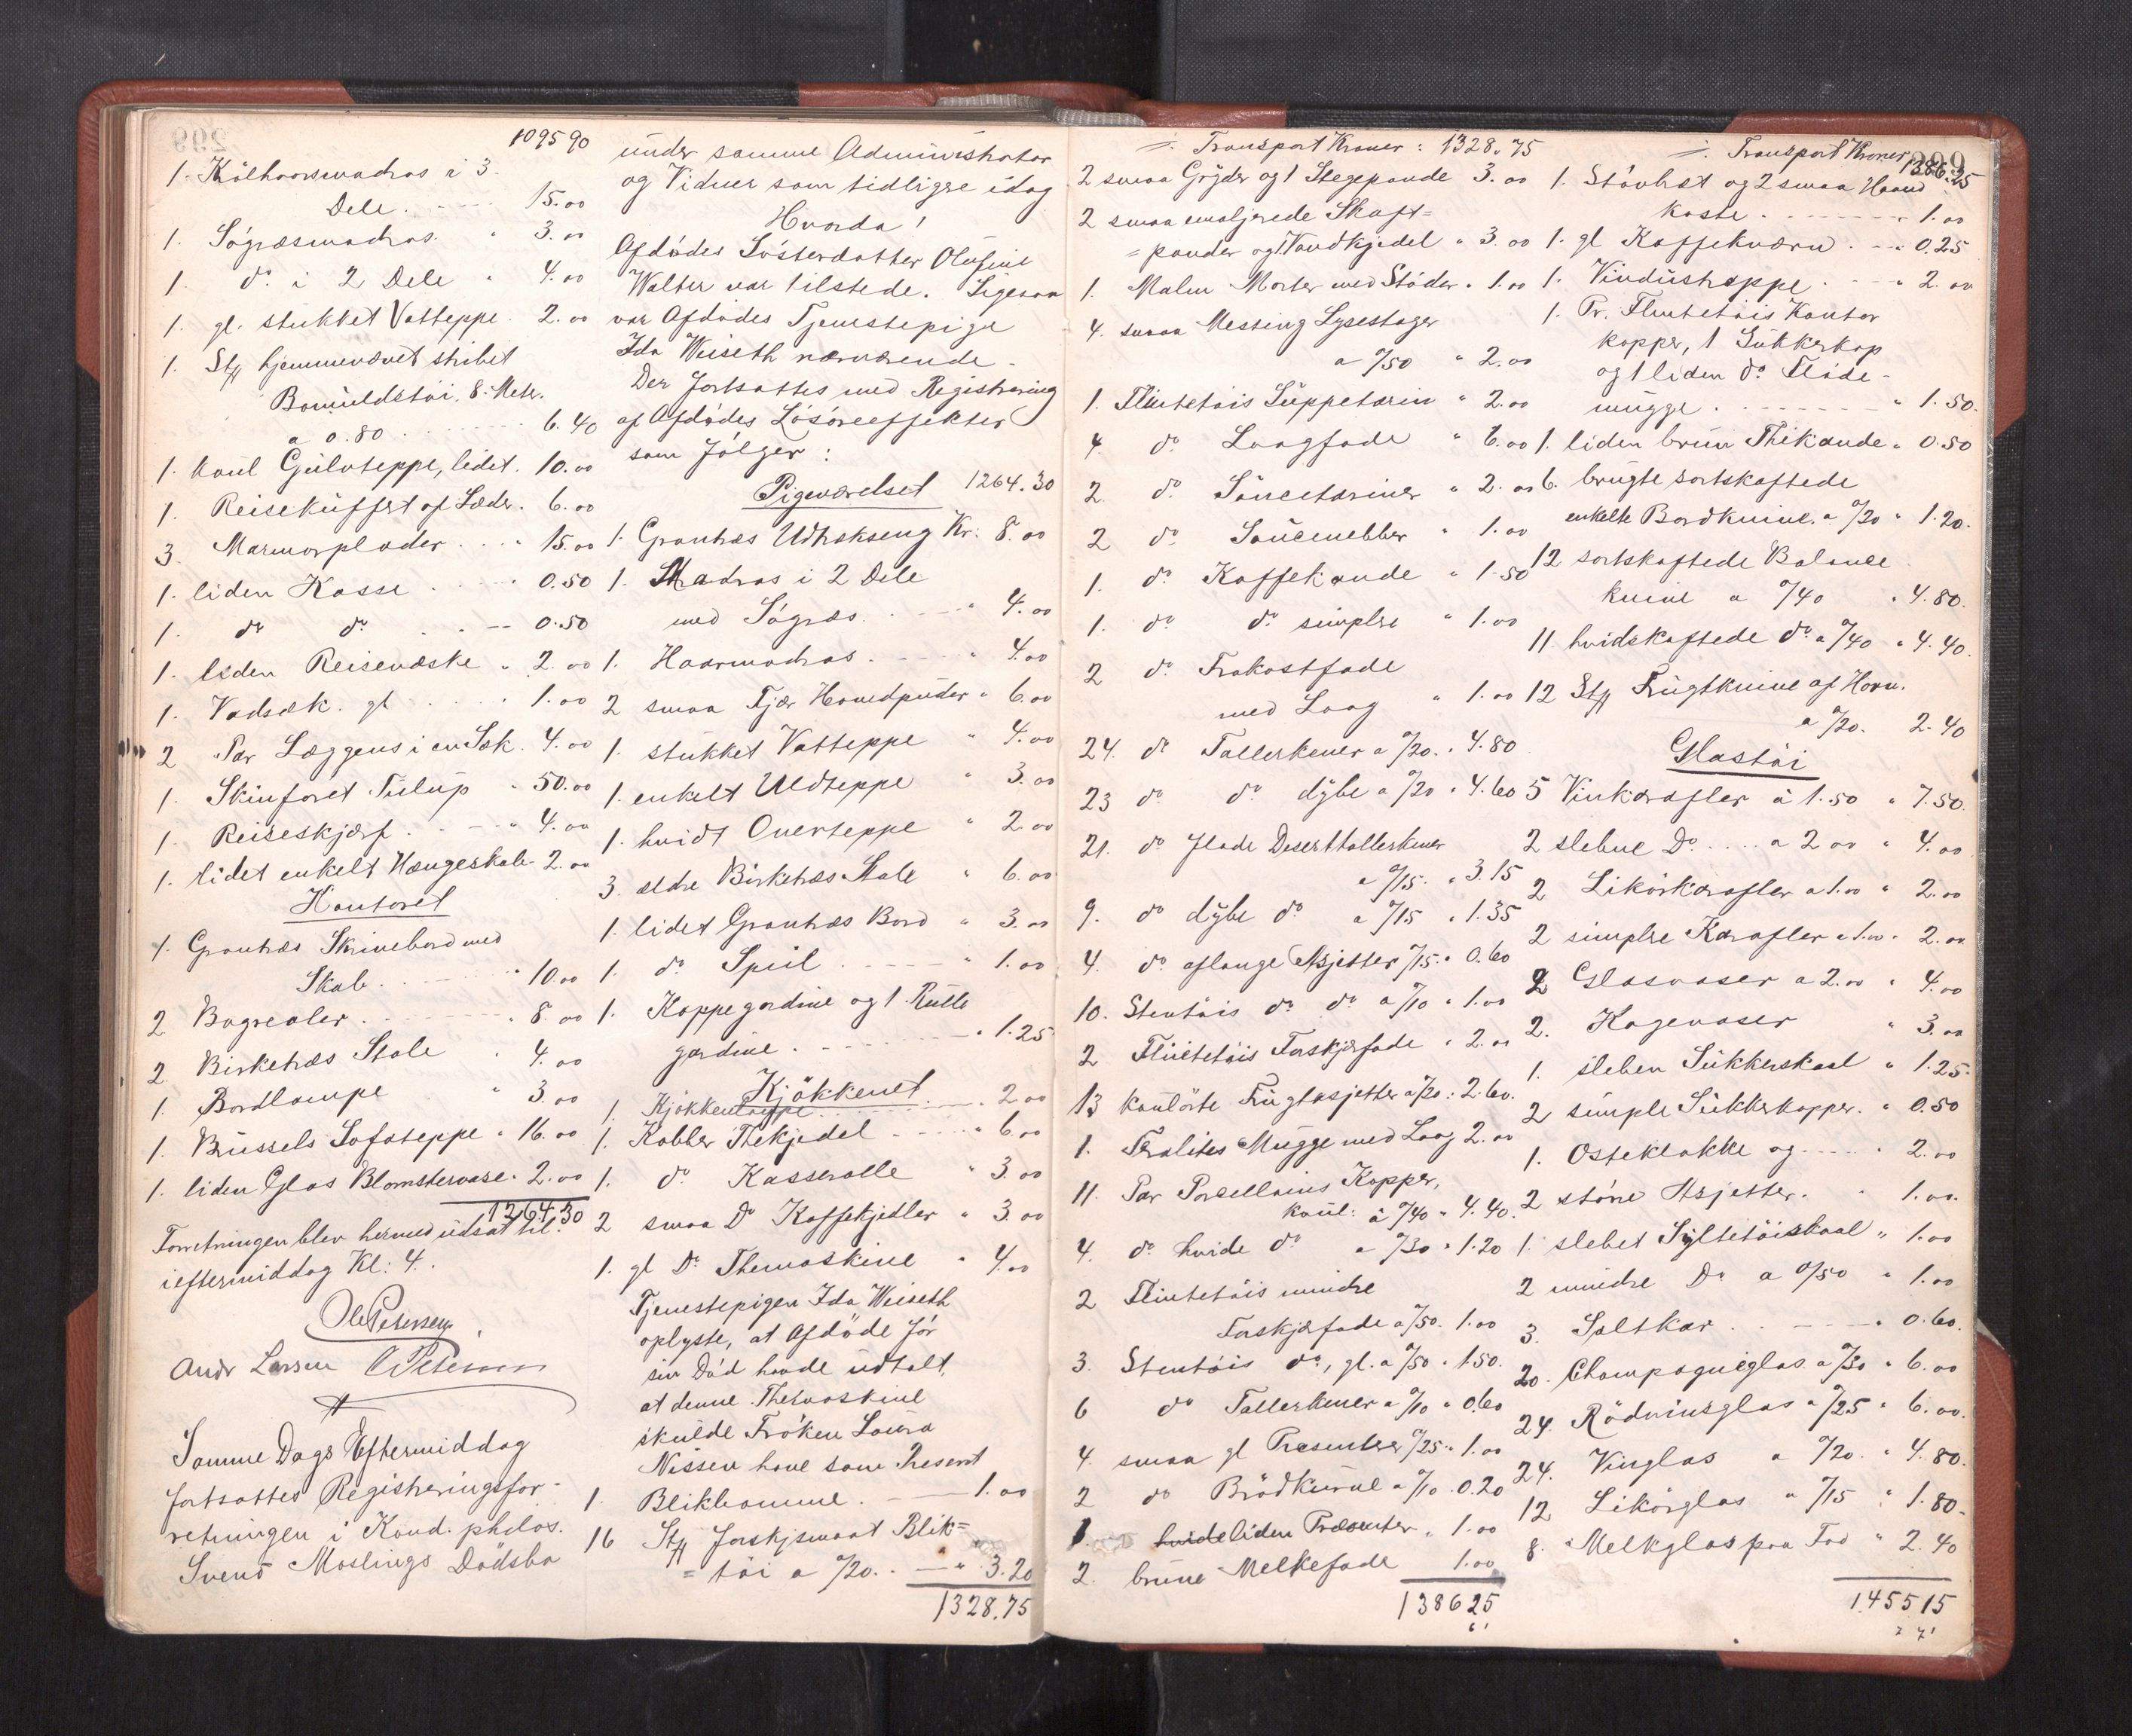 1095 90
1. Kølhaarsmadras i 3
Dele. 15.00
1. Søgræsmadras. " 3.00
1. do i 2 Dele " 4.00
1. gl. stukket Vatteppe. 2.00
1. Stk hjemmevævet stribet
Bomuldstøi. 8. Metr.
a 0.80 6.40
1. koul Gulvteppe, lidet. 10.00
1. Reisekuffert af Læder. 6.00
3. Marmorplader " 15.00
1. liden Kasse " 0.50
1. do do 0.50
1. liden Reisevæske " 2.00
1. Vadsæk. gl 1.00
2 Par Læggens i en Sæk. 4.00
1. Skinforet Tulup " 50.00
1. Reiseskjærf " 4.00
1. lidet enkelt Hængeskab 2.00
Kontoret
1. Grantræs Skrivebord med
Skab " 10.00
2 Bogreoler " 8.00
2. Birketræs Stole " 4.00
1. Bordlampe " 3.00
1. Brussels Sofateppe " 16.00
1. liden Glas Blomstervase " 2.00
1264.30
Forretningen blev hermed udsat til
ieftermiddag Kl: 4.
Ole Petersen
Andr Larsen C Petersen
Samme Dags Eftermiddag
fortsattes Registreringsfor-
retningen i Kand. philos.
Svend Moslings Dødsbo
under samme Administrator
og Vidner som tidligere idag
Hvorda!
Afdødes Søsterdatter Olufine
Walter var tilstede. Ligesaa
var Afdødes Tjenestepige
Ida Weiseth nærværende.
Der fortsattes med Registrering
af Afdødes Løsøreeffekter
som følger:
Pigeværelset 1264.30
1. Grantræs Udtrækseng Kr: 8.00
1. Madras i 2 Dele
med Søgræs " 4.00
1. Haarmadras " 4.00
2 smaa Fjær Hovedpuder " 6.00
1. stukket Vatteppe " 4.00
1. enkelt Uldteppe " 3.00
1. hvidt Overteppe " 2.00
3. ældre Birketræs Stole " 6.00
1. lidet Grantræs Bord " 3.00
1. do Speil " 1.00
1. Kappegardine og 1 Rulle
gardine " 1.25
Kjøkkenet
1. Kjøkkenlampe 2.00
1. Kobber Thekjedel " 6.00
1. do Kasserolle " 3.00
2 smaa Do Kaffekjedler " 3.00
1. gl Do Themaskine " 4.00
Tjenestepigen Ida Weiseth
oplyste, at Afdøde før
sin Død havde udtalt,
at denne Themaskine
skulde Frøken Laura
Nissen have som Present
1. Blikkomme 1.00
16 Stk forskjmaat Blik=
=tøi a 0/20 " 3.20
1328.75
Transport Kroner: 1328.75
2 smaa Gryder og 1 Stegepande 3.00
2 smaa emaljerede Skaft=
=pander og 1 Vandkjedel " 3.00
1. Malm Morter med Støder " 1.00
4. smaa Messing Lysestager
a 0/50 " 2.00
1. Flintetøis Suppeterin " 2.00
4 do Laagfade " 6.00
2 do Sauceteriner " 2.00
2 do Saucenebber " 1.00
1. do Kaffekande " 1.50
1. do do simplere " 1.00
2 do Frokostfade
med Laag " 1.00
24. do Tallerkener a 0/20 " 4.80
23 do do dybe a 0/20 " 4.60
21. do flade Deserttallerkener
a 0/15 " 3.15
9. do dybe do a 0/15 " 1.35
4. do aflange Asjetter 0/15 " 0.60
10. Stentøis do do a 0/10 " 1.00
2 Flintetøis Forskjærfade " 2.00
13 koulørte Frugtasjetter a 0/20 : 2.60.
1. Feralites Mugge med Laag 2.00
11. Par Porcellains Kopper,
koul: a 0/40 " 4.40.
4. do hvide do a 0/30 " 1.20
2 Flintetøis mindre
Forskjærfade a 0/50. 1.00
3. Stentøis do, gl. a 0/50 " 1.50.
6 do Tallerkener a 0/10 " 0.60
4. smaa gl Presenter 0/25 " 1.00
2 do Brødkurve a 0/10. 0.20
1. hvide liden Præsenter " 1.00
2. brune Melkefade 1.00
1386 25
Transport Kroner 1386.25
1. Støvkst og 2 smaa Haand
koste " 1.00
1. gl Kaffekværn " 0.25
1. Vindustrappe " 2.00
1. Pr. Flintetøis Kontor
kopper, 1 Sukkerkop
og 1 liden do Fløde-
mugge " 1.50.
1. liden brun Thekande " 0.50
6. brugte sortskaftede
enkelte Bordknive. a 0/20 " 1.20.
12 sortskaftede Balance
knive a 0/40 " 4.80.
11 hvidskaftede do a 0/40 " 4.40.
12 Stk Frugtknive af Horn.
a 0/20. 2.40
Glastøi
5 Vinkarafler à 1.50 " 7.50.
2 slebne Do a 2.00 " 4.00
2 Likørkarafler a 1.00 " 2.00
2 simplere Karafler a 1.00 " 2.00.
2 Glasvaser a 2.00 " 4.00
2. Kagevaser " 3.00
1. sleben Sukkerskaal " 1.25.
2 simple Sukkerkopper. " 0.50
1. Osteklokke og " 2.00
2 større Asjetter. " 1.00.
1. slebet Syltetøiskaal " 1.00
2 mindre Do a 0/50 " 1.00
3. Saltkar " 0.60.
20. Champagneglas. a 0/30 " 6.00
24. Rødvinsglas a 0/25 " 6.00.
24. Vinglas a 0/20. " 4.80.
12 Likørglas a 0/15 " 1.80.
8. Melkglas paa Fod " 2.40
1455 15